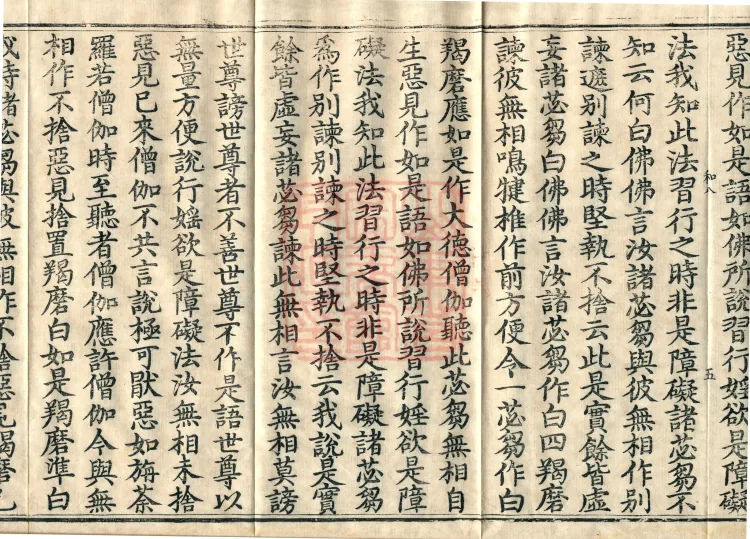 惡見作如是語如佛所說習行婬欲是障礙
法我知此法習行之時非是障礙諸苾芻不
知云何白佛佛言汝諸苾芻與彼無相作別
諫遮別諫之時堅執不捨云此是實餘皆虛
妄諸苾芻白佛佛言汝諸苾芻作白四羯磨
諫彼無相鳴犍椎作前方便令一苾芻作白
羯磨應如是作大德僧伽聽此苾芻無相自
生惡見作如是語如佛所說習行婬欲是障
礙法我知此法習行之時非是障礙諸苾芻
爲作別諫別諫之時堅執不捨云我說是實
餘皆虛妄諸苾芻諫此無相言汝無相莫謗
世尊謗世尊者不善世尊不作是語世尊以
無量方便說行婬欲是障礙法汝無相未捨
惡見已來僧伽不共言說極可厭惡如旃荼
羅若僧伽時至聽者僧伽應許僧伽今與無
相作不捨惡見捨置羯磨白如是羯磨準白
成時諸苾芻與彼無相作不捨惡見羯磨已